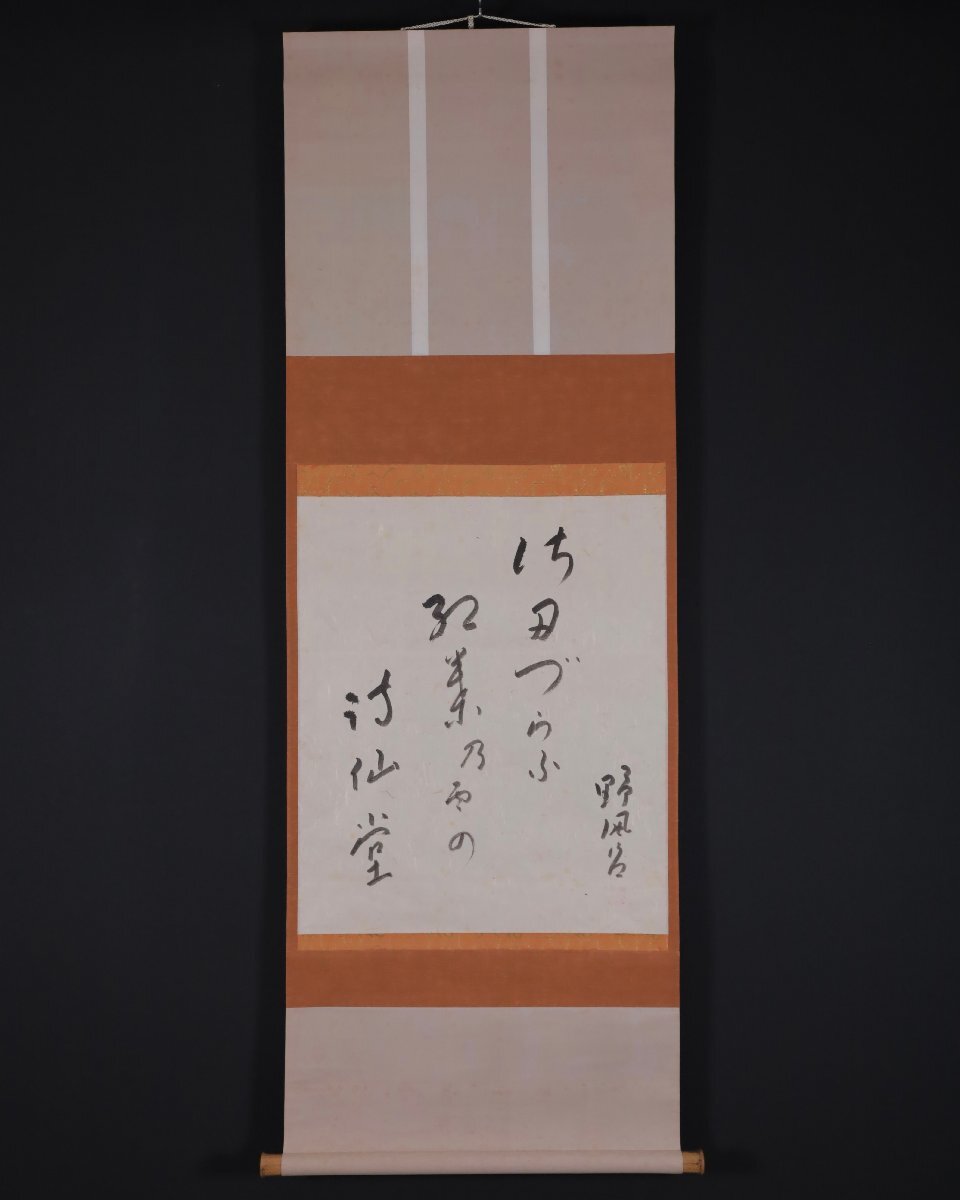 野風呂
佐丹づらふ
紅葉乃雨の
詩仙堂